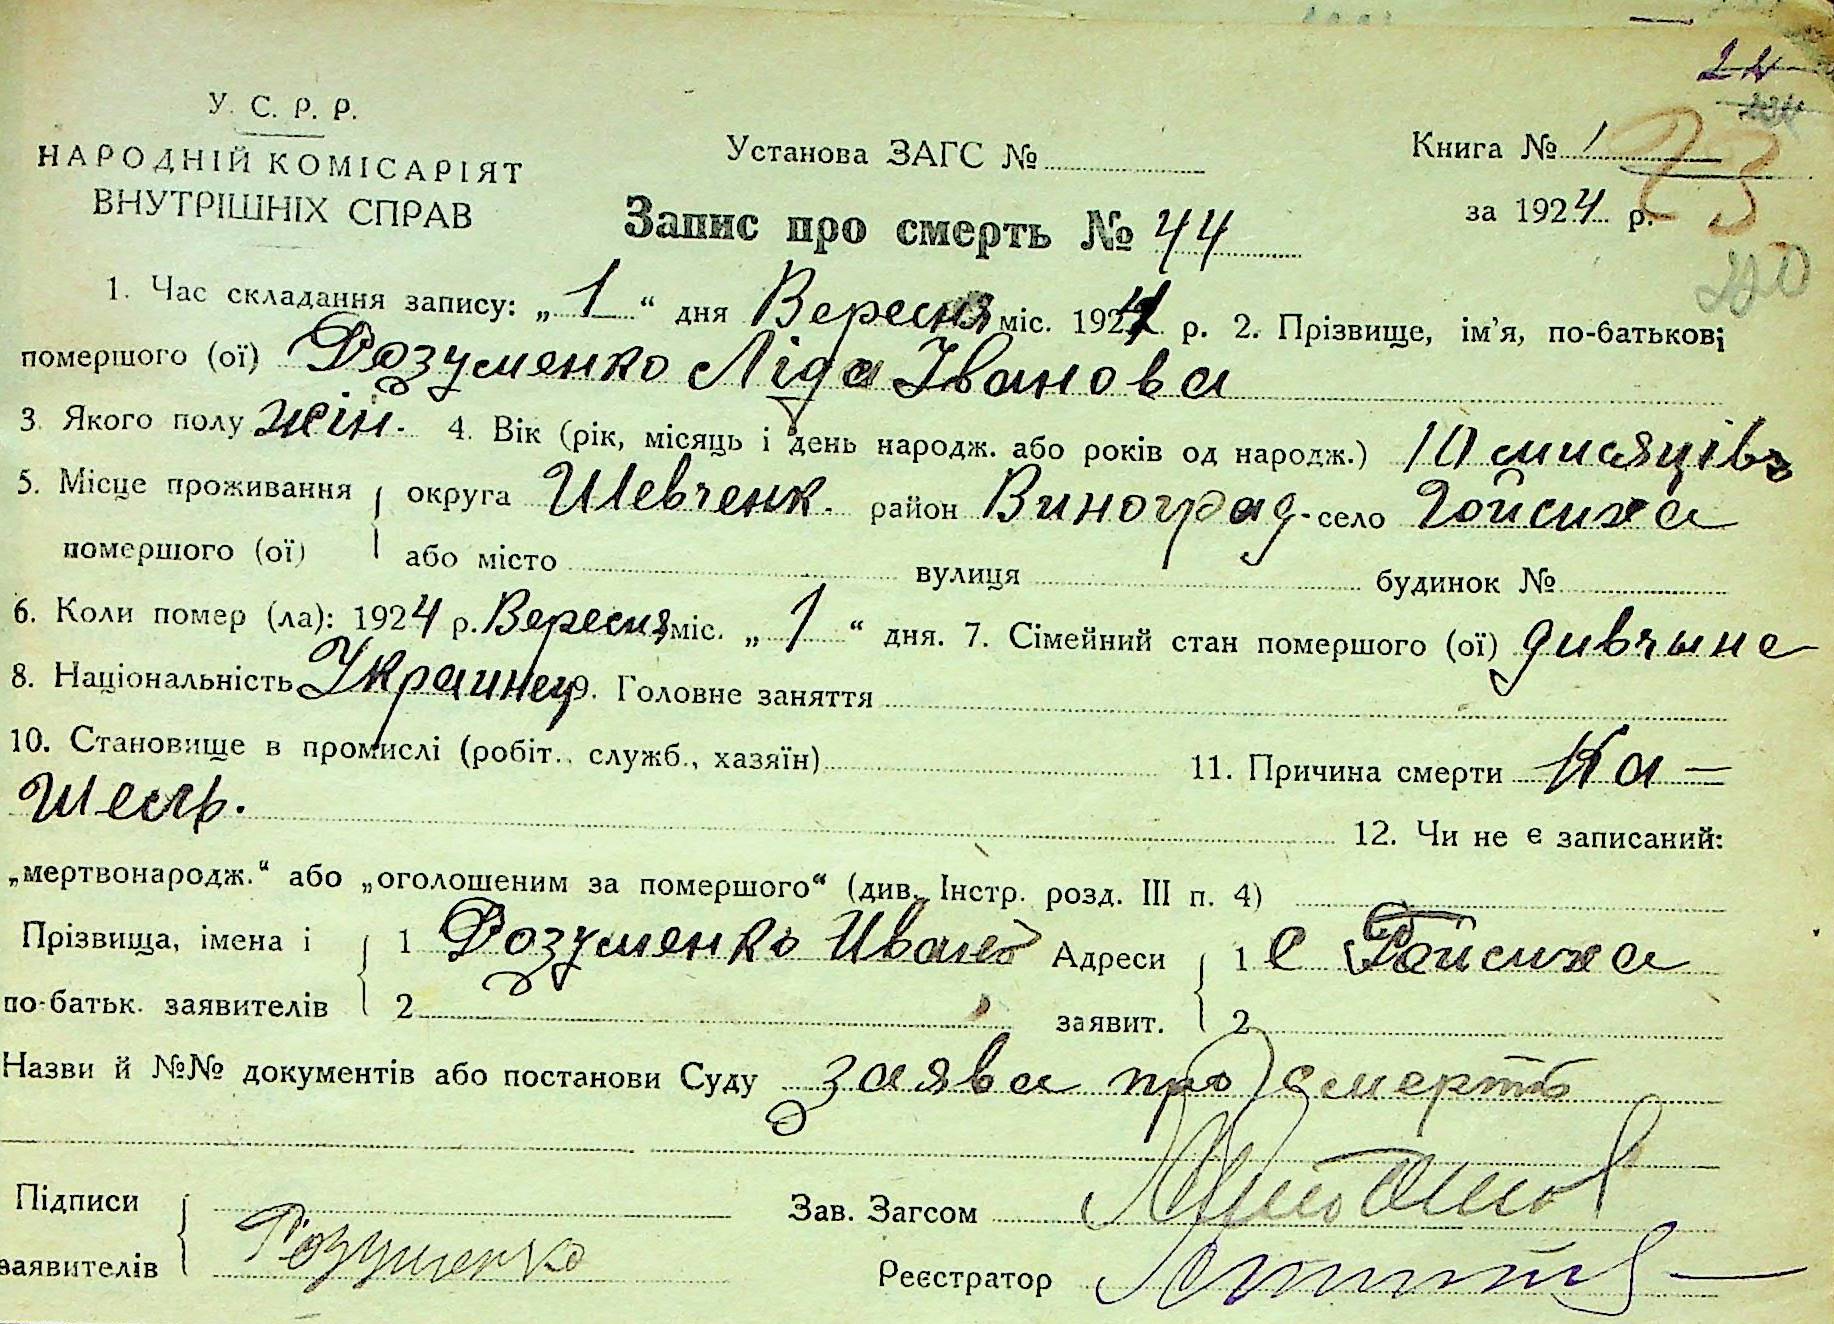 У. С. Р. Р.
НАРОДНІЙ КОМІСАРІЯТ
ВНУТРІШНІХ СПРАВ
Установа ЗАГС №
Книга № 1
за 1924 р.
23
Запис про смерть № 44
1. Час складання запису: „ 1 “ дня Вересня міс. 1924 р. 2. Прізвище, ім’я, по-батькові
помершого (ої) Розуменко Ліда Іванова
3. Якого полу жін. 4. Вік (рік, місяць і день народж. або років од народж.) 10 мисяцівъ
5. Місце проживання округа Шевченк. район Виноград. село Гойсиха
помершого (ої) або місто вулиця будинок №
6. Коли помер (ла): 1924 р. Вересня міс. „ 1 “ дня. 7. Сімейний стан помершого (ої) дивчына
8. Національність Украинец 9. Головне заняття
10. Становище в промислі (робіт., служб., хазяїн) 11. Причина смерти Ка-
шель. 12. Чи не є записаний:
„мертвонародж.“ або „оголошеним за помершого“ (див. Інстр. розд. III п. 4)
Прізвища, імена і 1 Розуменко Иван Адреси 1 с Гойсиха
по-батьк. заявителів 2 заявит. 2
Назви й №№ документів або постанови Суду заява про смерть
Підписи Зав. Загсом
заявителів Розуменко Реєстратор